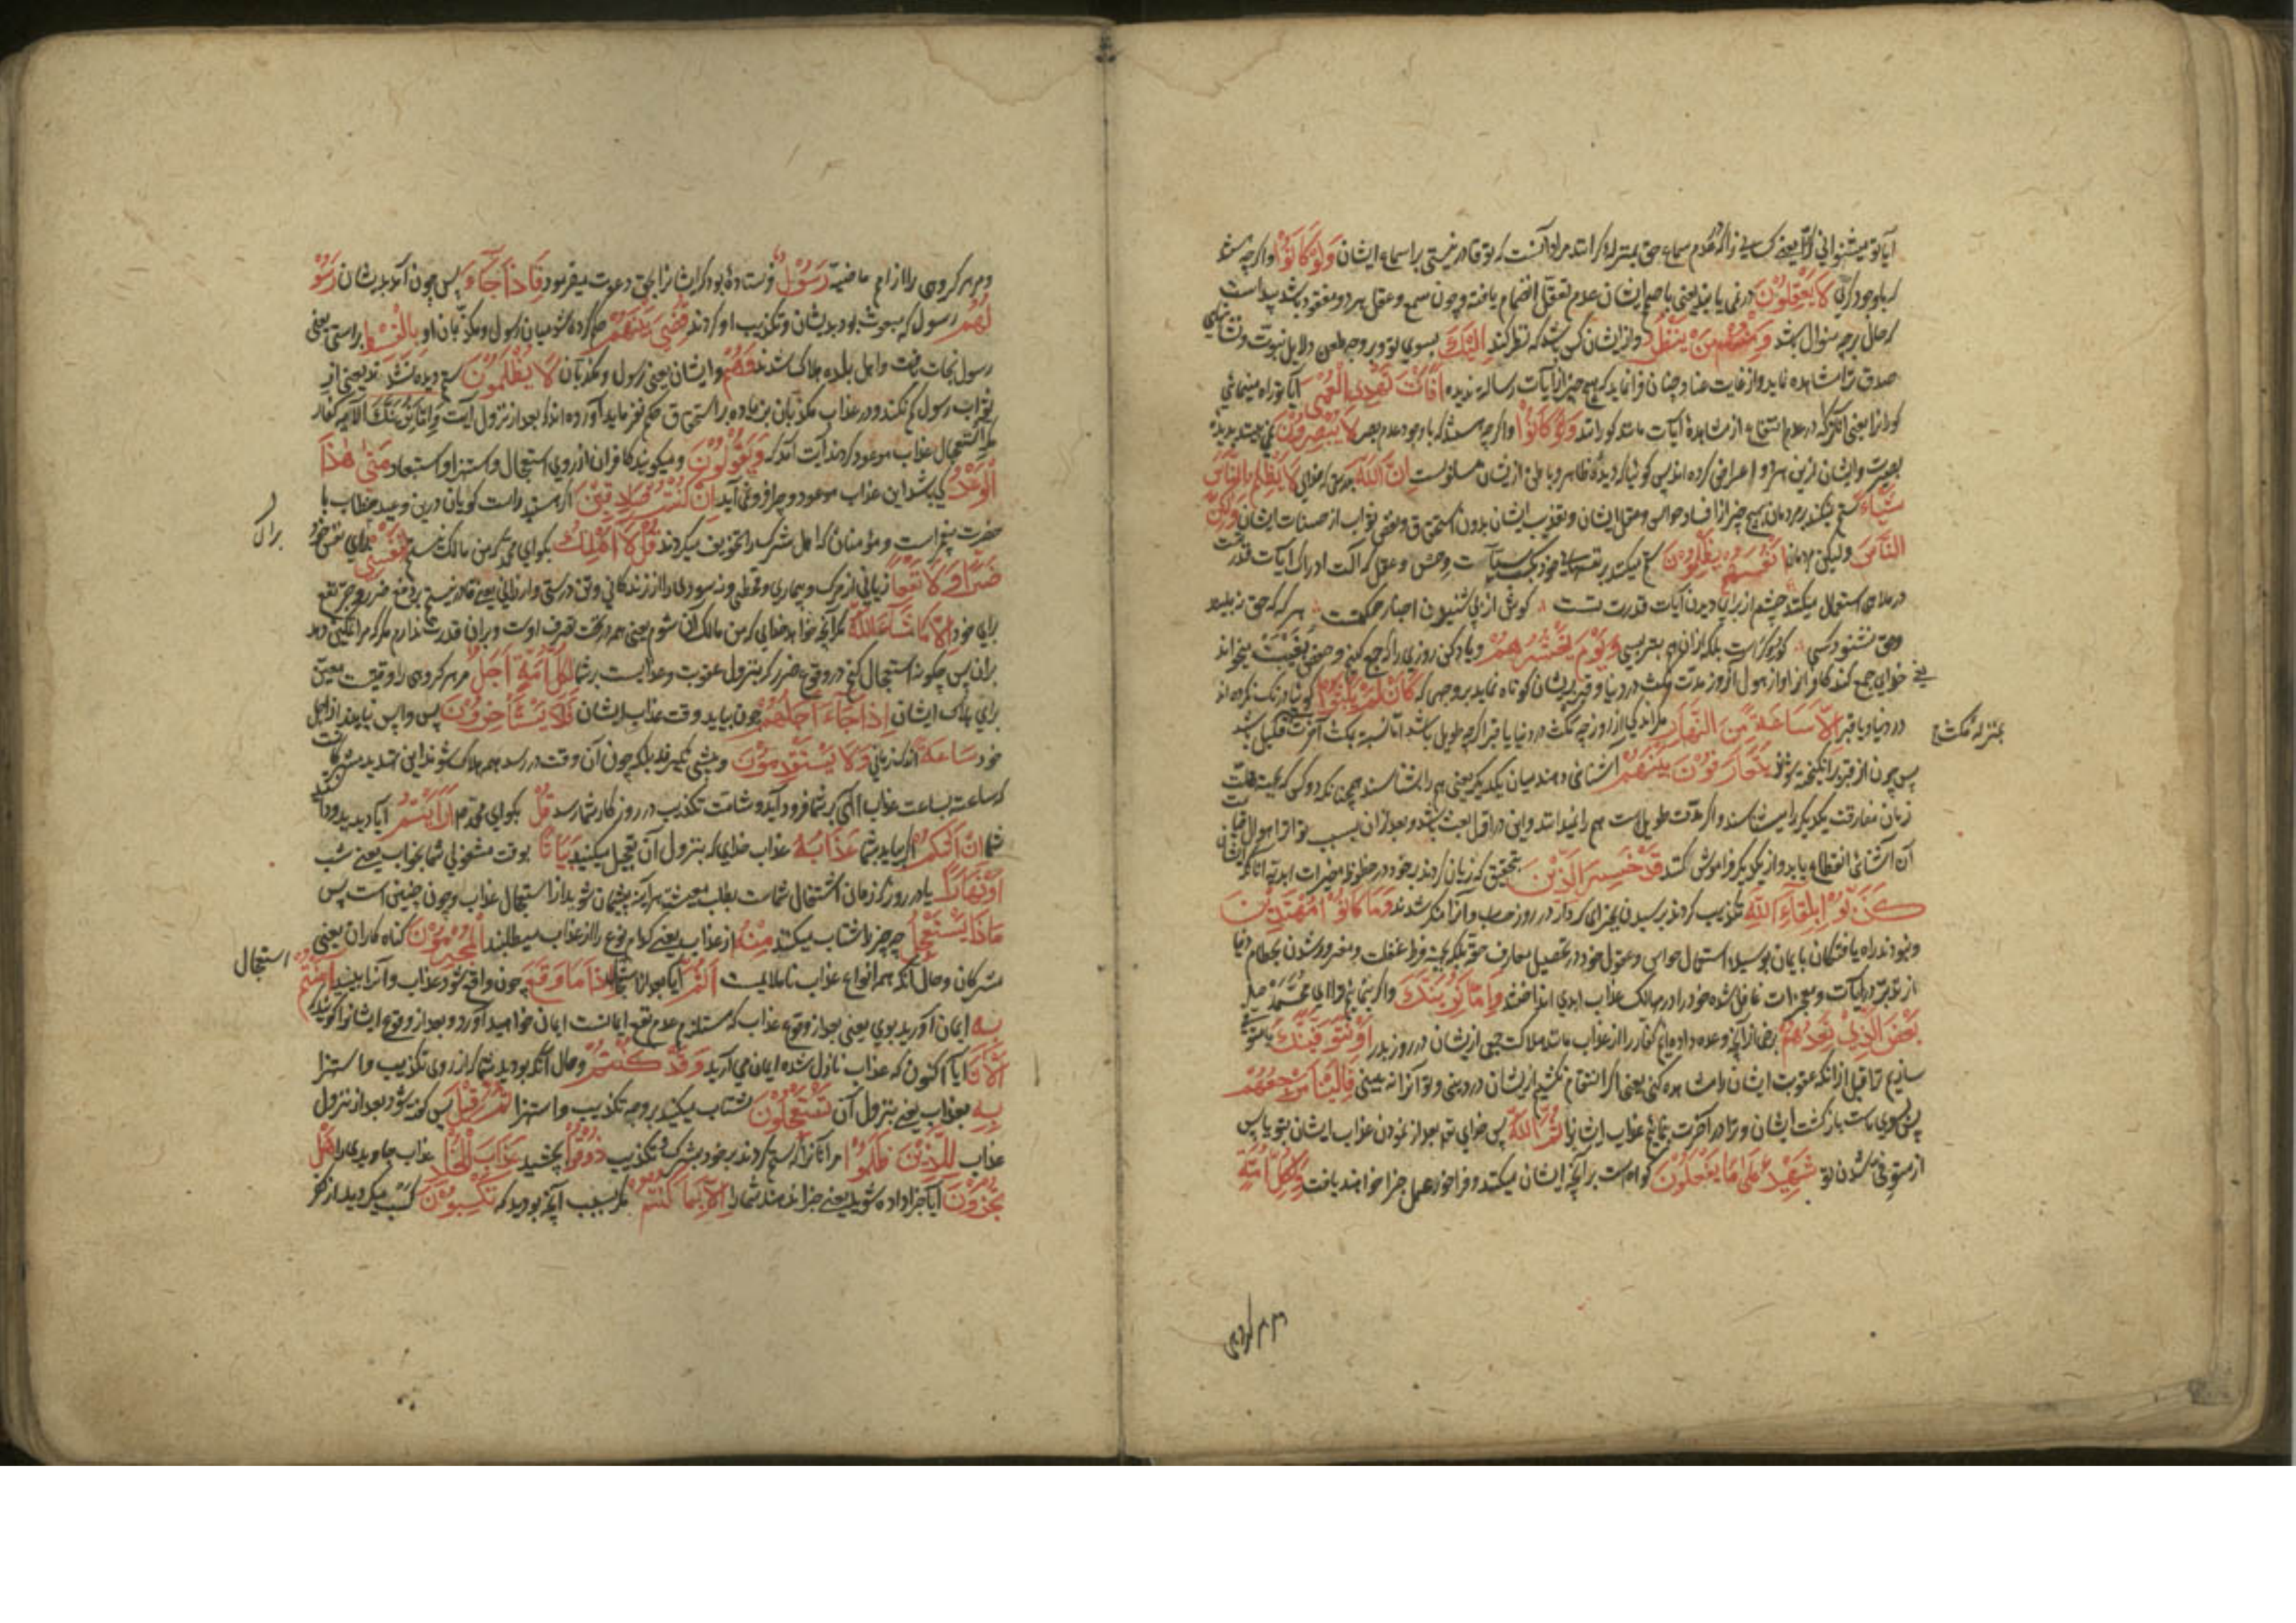 آیا تو میشنوانی کرانرا یعنی کسانی را که در عدم سماع حق بمنزله کرانند مراد آنست که تو قادر نیستی بر اسماع ایشان وَلَوْ كَانُوْا و اگرچه باشند
که باوجود کری لَا يَعْقِلُوْنَ در نمی یابند یعنی با صمم ایشان عدم تعقل انضمام یافته و چون سمع و عقل هر دو مفقود باشد پیداست
که حال برچه منوال باشد وَمِنْهُمْ مَنْ يَنْظُرُ و از ایشان کس باشد که نظر کند اِلَيْكَ بسوی تو و بر وجه طعن دلایل نبوت و نشانهای
صدق ترا مشاهده نماید و از غایت عناد چنان فرا نماید که هیچ چیز از آیات رسالت ندیده اَفَاَنْتَ تَهْدِي الْعُمْيَ آیا تو راه مینمائی
کورانرا یعنی آنکه در عدم انتفاع از مشاهده آیات مانند کورانند وَلَوْ كَانُوْا و اگرچه باشند که باوجود عدم بصر لَا يُبْصِرُوْنَ نمی بینند بدیده
بصیرت و ایشان ازین هر دو اعراض کرده اند پس گوئیا که دیده ظاهر و باطن ازیشان مسلوبست اِنَّ اللّٰهَ بدرستی که خدای لَا يَظْلِمُ النَّاسَ
شَيْئًا ستم نمیکند بر مردمان بهیچ چیز از افساد حواس و عقل ایشان و تعذیب ایشان بدون استحقاق و نقص ثواب از حسنات ایشان وَلٰكِنَّ
النَّاسَ ولیکن مردمان اَنْفُسَهُمْ يَظْلِمُوْنَ ستم میکنند بر نفسهای خود و حس و عقل که آلت ادراک آیات قدرتست
در ملاهی استعمال میکنند چشم از برای دیدن آیات قدرت تست گوش از پی شنیدن اخبار حکمت هر که که حق نبیند
وحق نشنود کسی کور و کرست بلکه ازان هم بتر بسی وَيَوْمَ يَحْشُرُهُمْ و یاد کن روزی را که جمع کنیم و حفص بغیبت میخواند
یعنی خدای جمع کند کافرانرا و از هول آن روز مدت مکث در دنیا و قبر بر ایشان کوتاه نماید بر وجهی که كَاَنْ لَمْ يَلْبَثُوْا گوئیا درنگ نکرده اند
در دنیا و یا قبر اِلَّا سَاعَةً مِنَ النَّهَارِ مگر اندکی از روز چه مکث در دنیا یا قبر اگرچه طویل باشد اما نسبت بمکث آخرت قلیل باشد
بمنزله مکث
پس چون از قبر برانگیخته شوند يَتَعَارَفُوْنَ بَيْنَهُمْ آشنائی دهند میان یکدیگر یعنی هم را بشناسند همچنانکه دو کس که بجهت قلت
زمان مفارقت یکدیگر را میشناسند و اگر مدت طویل است هم را نمیدانند و این در اول بعث باشد و بعد ازان بسبب تواتر اهوال قیامت
آن آشنائی انقطاع یابد و از یکدیگر فراموش کنند قَدْ خَسِرَ الَّذِيْنَ بتحقیق که زیان کردند بر خود در حظوظ مخیرات ابدیه آنانکه
كَذَّبُوْا بِلِقَآءِ اللّٰهِ تکذیب کردند برسیدن بجزای کردار در روز حساب و انرا منکر شدند وَمَا كَانُوْا مُهْتَدِيْنَ
و نبودند راه یافتگان بایمان بوسیله استعمال حواس و عقول خود در تحصیل معارف حقه بلکه بجهت فرط غفلت و مغرور شدن بحطام دنیا
از تدبر در آیات و معجزات غافل شده خود را در مهالک عذاب ابدی انداختند وَاِمَّا نُرِيَنَّكَ و اگر بنمائیم ترا ای محمد صلعم
بَعْضَ الَّذِيْ نَعِدُهُمْ برخی از آنچه وعده داده ایم کفار را از عذاب مانند هلاکت جمعی ازیشان در روز بدر اَوْ نَتَوَفَّيَنَّكَ یا متوفی
سازیم ترا قبل از انکه عقوبت ایشان را مشاهده کنی یعنی اگر انتقام نکشیم ازیشان در دنیی و تو آنرا نه بینی فَاِلَيْنَا مَرْجِعُهُمْ
پس بسوی ماست بازگشت ایشان و ترا در آخرت بنمائیم عذاب ایشانرا ثُمَّ اللّٰهُ پس خدای تع بعد از نمودن عذاب ایشان بتو یا پس
از متوفی شدن تو شَهِيْدٌ عَلٰى مَا يَفْعَلُوْنَ گواه است بر آنچه ایشان میکنند و فراخور عمل جزا خواهند یافت وَلِكُلِّ اُمَّةٍ
و مر هر گروهی
و مر هر گروهی را از امم ماضیه رَسُوْلٌ فرستاده بود که ایشانرا بحق دعوت میفرمود فَاِذَا جَآءَ پس چون آمد بدیشان رَسُوْ
لُهُمْ رسول که مبعوث بود بدیشان و تکذیب او کردند قُضِيَ بَيْنَهُمْ حکم کرده شد میان رسول و مکذبان او بِالْقِسْطِ براستی یعنی
رسول نجات یافت و اهل بلده هلاک شدند وَهُمْ و ایشان یعنی رسول و مکذبان لَا يُظْلَمُوْنَ ستم دیده نشدند یعنی از
ثواب رسول کم نکنند و در عذاب مکذبان بزیاده بر استحقاق حکم نفرماید آورده اند که بعد از نزول آیت وَاِمَّا نُرِيَنَّكَ الآیه کفار
مکه استعجال عذاب موعود کردند آیت آمد که وَيَقُوْلُوْنَ و میگویند کافران از روی استعجال و استهزا و استبعاد مَتٰى هٰذَا
الْوَعْدُ کی باشد این عذاب موعود و چرا فرو نمی آید اِنْ كُنْتُمْ صَادِقِيْنَ اگر هستید راست گویان درین وعید خطاب با
حضرت پیغمبر است و مؤمنان که اهل شرک را تخویف میکردند قُلْ لَا اَمْلِكُ بگو ای محمد که من مالک نیستم لِنَفْسِيْ برای نفس خود
برای
ضَرًّا وَلَا نَفْعًا زیانی از مرگ و بیماری و قحطی و نه سودی را از زندگانی و تن درستی و ارزانی یعنی قادر نیستم بر دفع ضرر و جر نفع
برای خود اِلَّا مَا شَآءَ اللّٰهُ مگر آنچه خواهد خدای که من مالک آن شوم یعنی همه در تحت تصرف اوست و بران قدرت ندارم مگر که مرا تمکین دهد
بران پس چگونه استعجال کنم در وقوع ضرر که بنزول عقوبت و عذابست بر شما لِكُلِّ اُمَّةٍ اَجَلٌ مر هر گروهی را وقتیست معین
برای هلاک ایشان اِذَا جَآءَ اَجَلُهُمْ چون بیاید وقت عذاب ایشان فَلَا يَسْتَأْخِرُوْنَ پس واپس نیایند از اجل
خود سَاعَةً اندک زمانی وَلَا يَسْتَقْدِمُوْنَ و پیشی نگیرند بلکه چون آن وقت در رسد همه هلاک شوند این تهدید مشرکانست
که ساعت بساعت عذاب الهی بر شما فرود آید و شامت تکذیب در روزگار شما رسد قُلْ بگو ای محمد مر اَرَاَيْتُمْ آیا دیدید و دانستید
شما اِنْ اَتٰىكُمْ اگر بیاید بشما عَذَابُهُ عذاب خدای که بنزول آن تعجیل میکنید بَيَاتًا بوقت مشغولی شما بخواب یعنی شب
اَوْ نَهَارًا یا در روز که زمان اشتغال شماست بطلب معیشت هر آینه پشیمان شوید از استعجال عذاب و چون چنین است پس
مَاذَا يَسْتَعْجِلُ چه چیز را شتاب میکنند مِنْهُ از عذاب یعنی کدام نوع را از عذاب میطلبند الْمُجْرِمُوْنَ گناه کاران یعنی
مشرکان و حال آنکه همه انواع عذاب ناملایمست اَثُمَّ آیا بعد از استعجال اِذَا مَا وَقَعَ چون واقع شود عذاب و آنرا ببینید اٰمَنْتُمْ
استعجال
بِهِ ایمان آورید بوی یعنی بعد از وقوع عذاب که مستلزم عدم نفع ایمانست ایمان خواهید آورد و بعد از وقوع ایشانرا گویند که
آلْآنَ آیا اکنون که عذاب نازل شده ایمان می آرید وَقَدْ كُنْتُمْ و حال آنکه بودید شما که از روی تکذیب و استهزا
بِهِ بعذاب یعنی بنزول آن تَسْتَعْجِلُوْنَ شتاب میکنید بر وجه تکذیب و استهزا ثُمَّ قِيْلَ پس گفته شود بعد از نزول
عذاب لِلَّذِيْنَ ظَلَمُوْا مر آنانرا که ستم کردند بر خود بشرک و تکذیب ذُوْقُوْا بچشید عَذَابَ الْخُلْدِ عذاب جاویدی را هَلْ
تُجْزَوْنَ آیا جزا داده شوید یعنی جزا ندهند شما را اِلَّا بِمَا كُنْتُمْ مگر بسبب آنچه بودید که تَكْسِبُوْنَ کسب میکردید از کفر